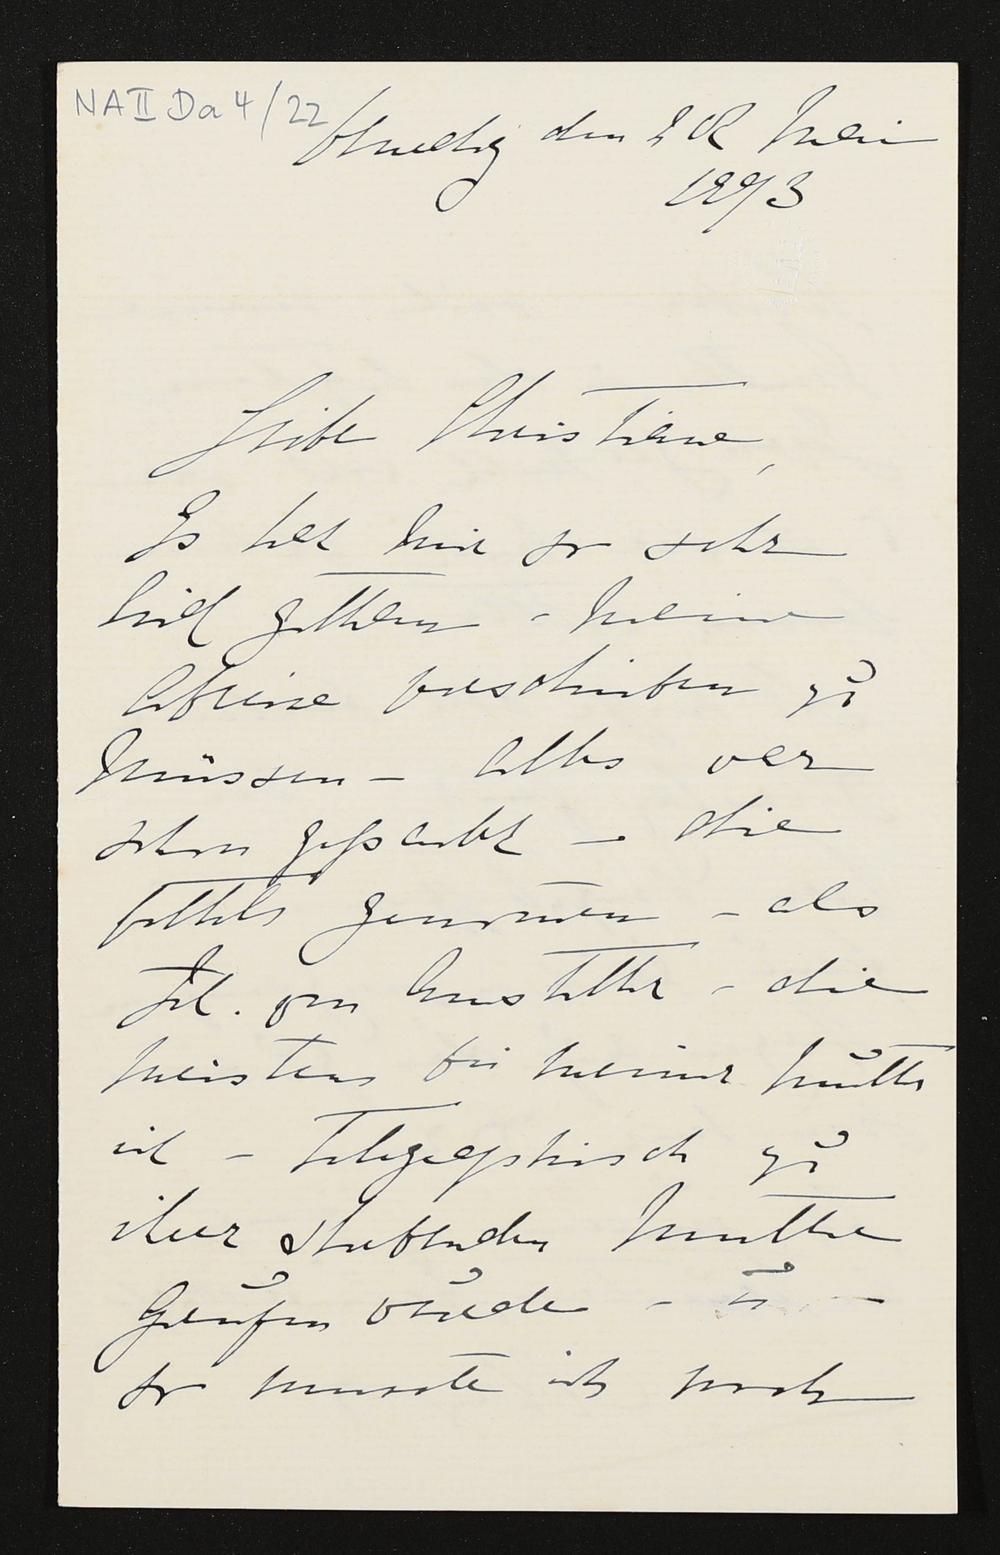 NA II Da 4/22
Venedig den 28 Mai
1893
Liebe Christiane,
Es hat mir so sehr
leid gethan - meine
Abreise verschieben zu
müssen - Alles war
schon gepackt - die
Billets genomen - als
Frl. von - die
meistens bei meiner Mutter
ist - telegraphisch zu
ihrer sterbenden Mutter
gerufen wurde - u. -
so musste ich noch